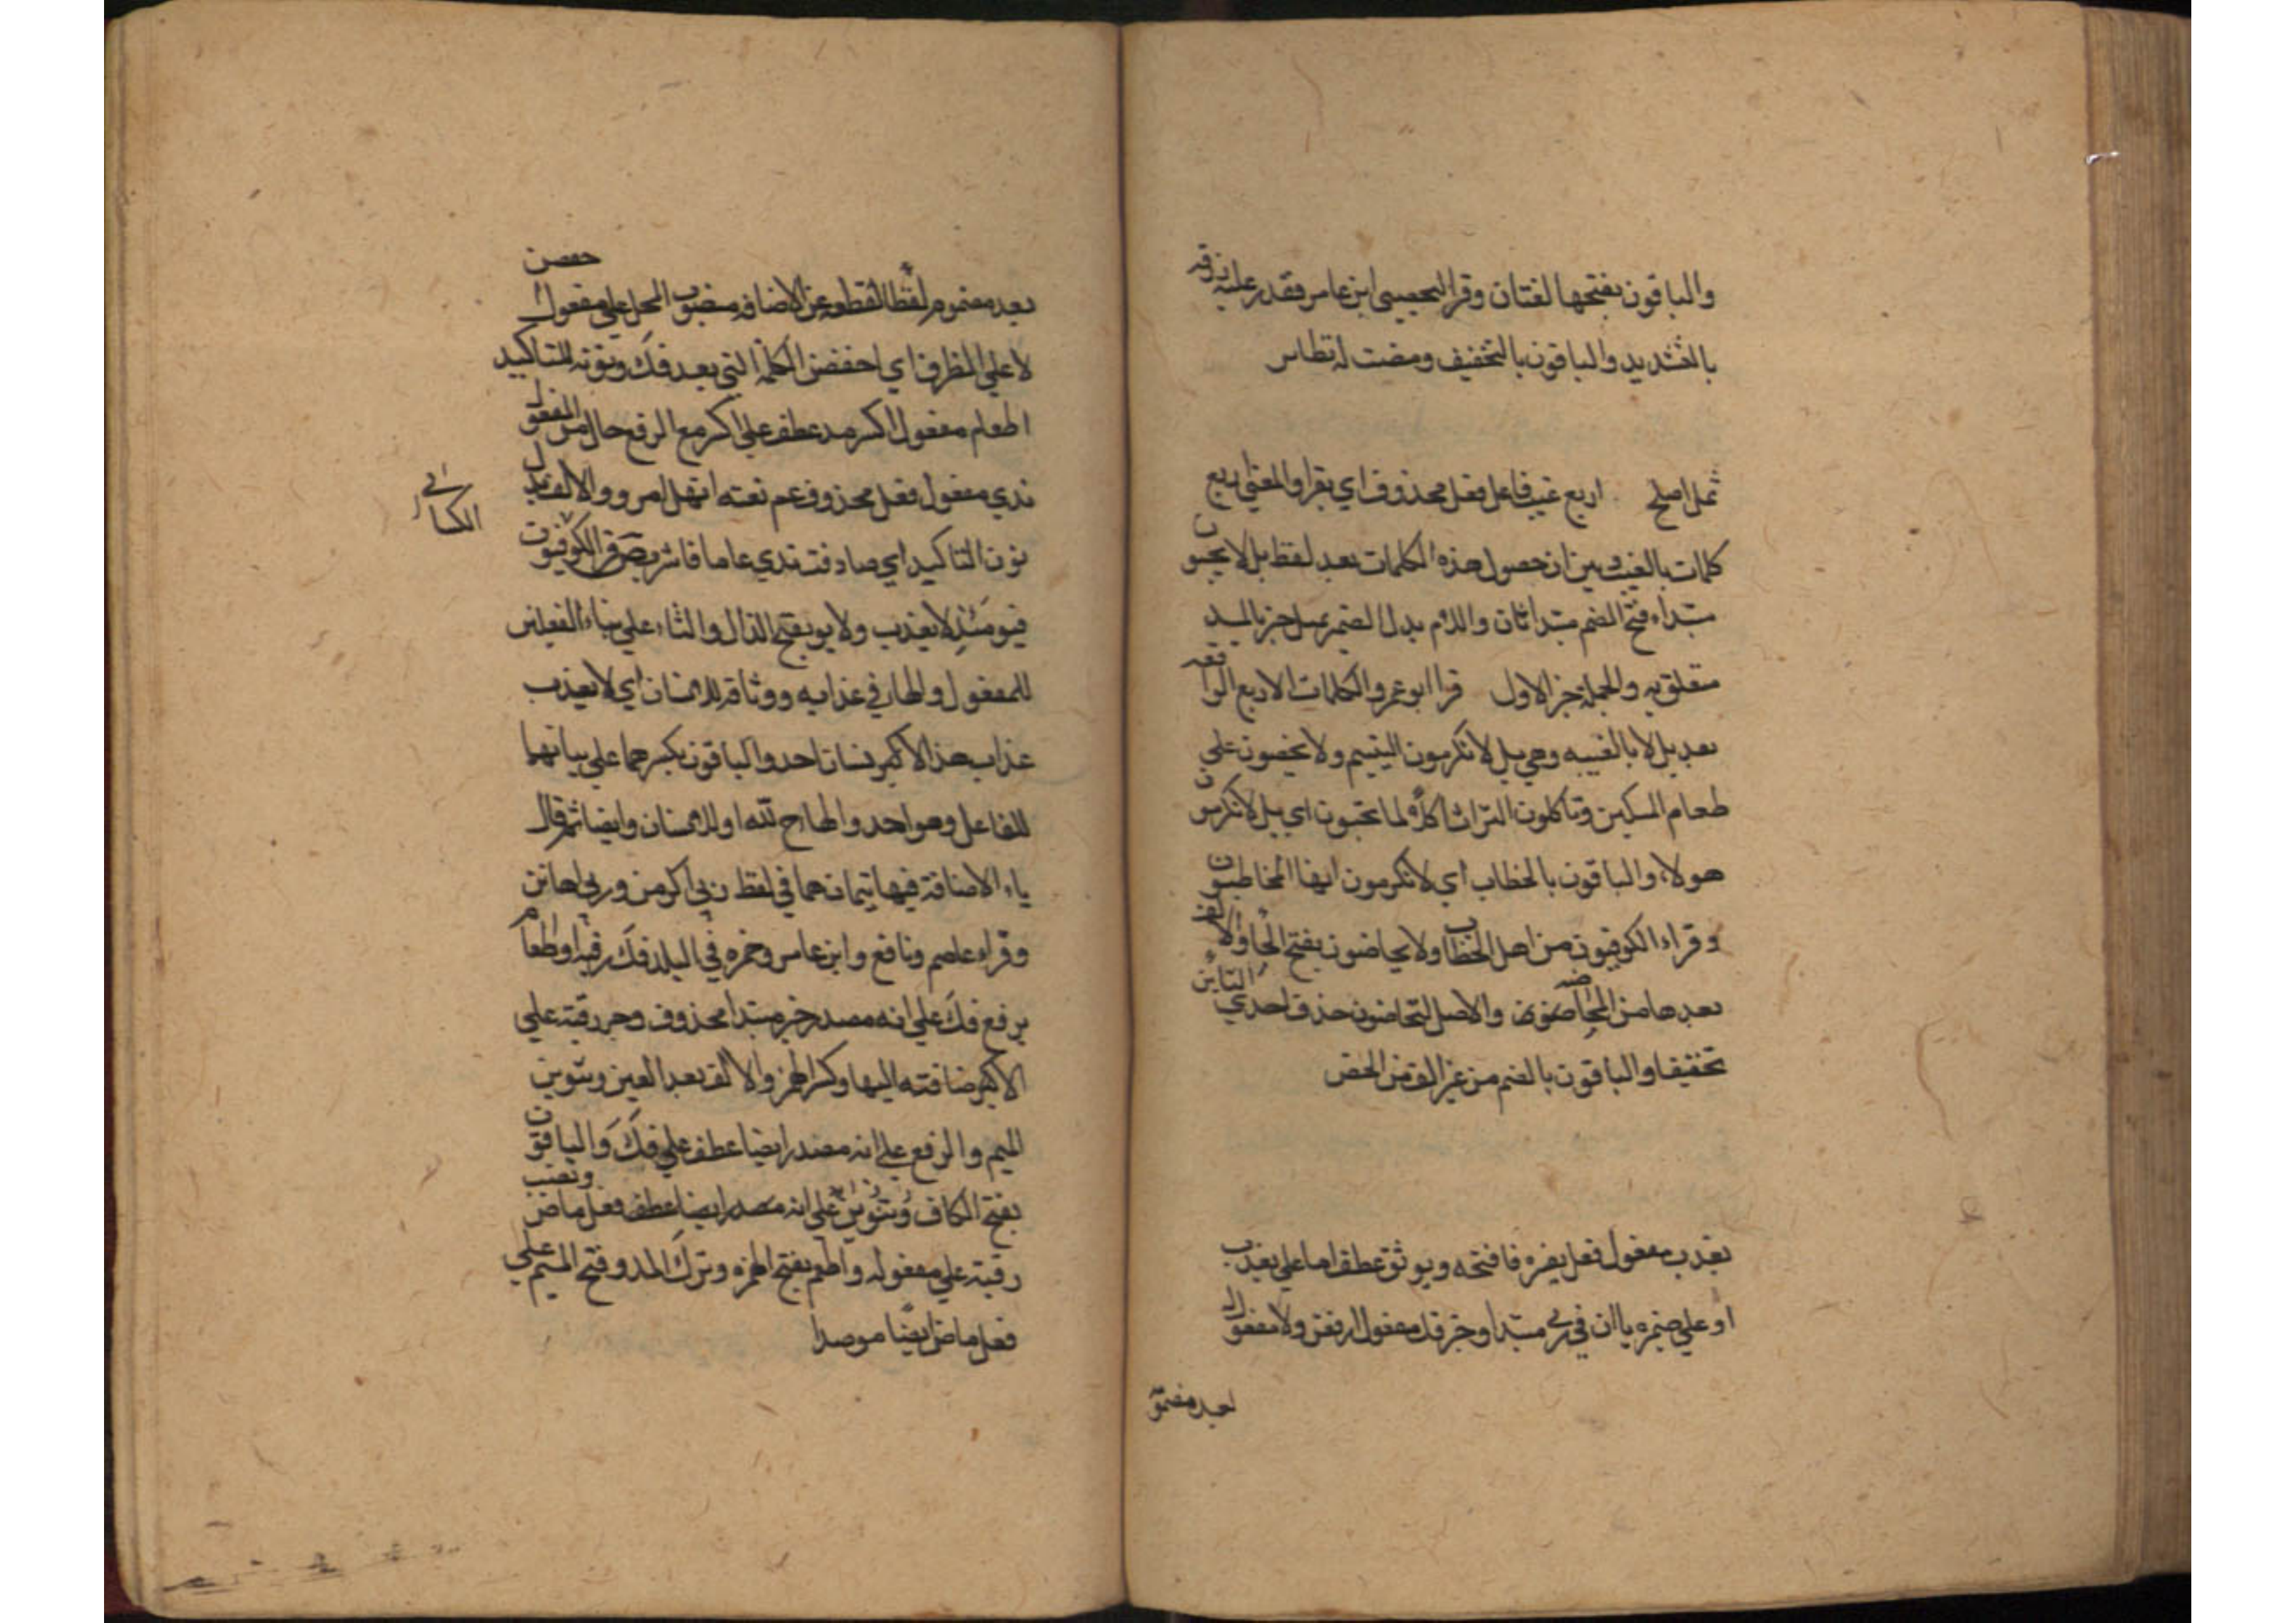 والباقون بفتحها لغتان وقرا اليحصبي ابن عامر فقدر عليه رزقه
بالتشديد والباقون بالتخفيف ومضت له نظاير
اربع غيب فاعل فعل محذوف اي يقرا والمعني اربع
كلمات بالغيب بين ان حصول هذه الكلمات بعد لفظ بل لا
مبتداء فتح الضم مبتدا ثان والالف بدل الضم
متعلق به والجملة خبر الاول قرا ابو عمرو الكلمات الاربع الواقعه
بعد بل لا بالغيبه وهي بل لا تكرمون اليتيم ولا يحضون علي
طعام المسكين وتاكلون التراث اكلا لما تحبون اي بل لا تكرمون
هولاء والباقون بالخطاب اي لا تكرمون ايها المخاطبون
وقراء الكوفيون من اهل الخطاب ولا يحاضون بفتح الحا والالف
بعدها من والاصل التحاضون حذف احدي التاين
تخفيفا والباقون بالضم من غير الف من الحض
يعذب مفعول فعل يفسره فافتحه ويوثق عطف اما علي يعذب
او علي ضميره يا ان في ربي مبتدا وخبر فك مفعول ارفعن ولا مفعول
بعد مضموم
حفص
بعد مضموم لفظا لقطعه عن الاضافه منصوب المحل علي مفعول
لا علي الظرف اي اخفض الكلمه التي بعد فك ونونه للتاكيد
اطعام مفعول اكسر مد عطف علي اكسر مع الرفع حال من المفعول
ندي مفعول فعل محذوف عم نعته انهل امر والالف بدل
الكسائي
نون التاكيد اي صادفت ندي عاما فاشرب ص قرا الكوفيون
فيومئذ لا يعذب ولا يوثق بفتح الذال والثاء علي بناء الفعلين
للمفعول والهاء في عذابه ووثاقه للانسان اي لا يعذب
عذاب هذا الانسان احد والباقون بكسرهما علي بنائهما
للفاعل وهو احد والهاء لله او للانسان وايضا ثم قال
ياء الاضافة فيها يتيمان هما في لفظ ربي اكرمن وربي اهانن
وقراء عاصم ونافع وابن عامر وحمزه في البلد فك رقبة او اطعام
برفع فك علي انه مصدر خبر مبتدا محذوف وجر رقبة علي
اضافته اليها وكسر الهمز والالف بعد العين وتنوين
الميم والرفع علي انه مصدر ايضا عطف علي فك والباقون
بفتح الكاف وتنوين علي انه مصدر ايضا عطف فعل ماض ونصب
رقبة علي مفعوله واطعم بفتح الهمزه وترك المد وفتح الميم علي
فعل ماض ايضا موصدا